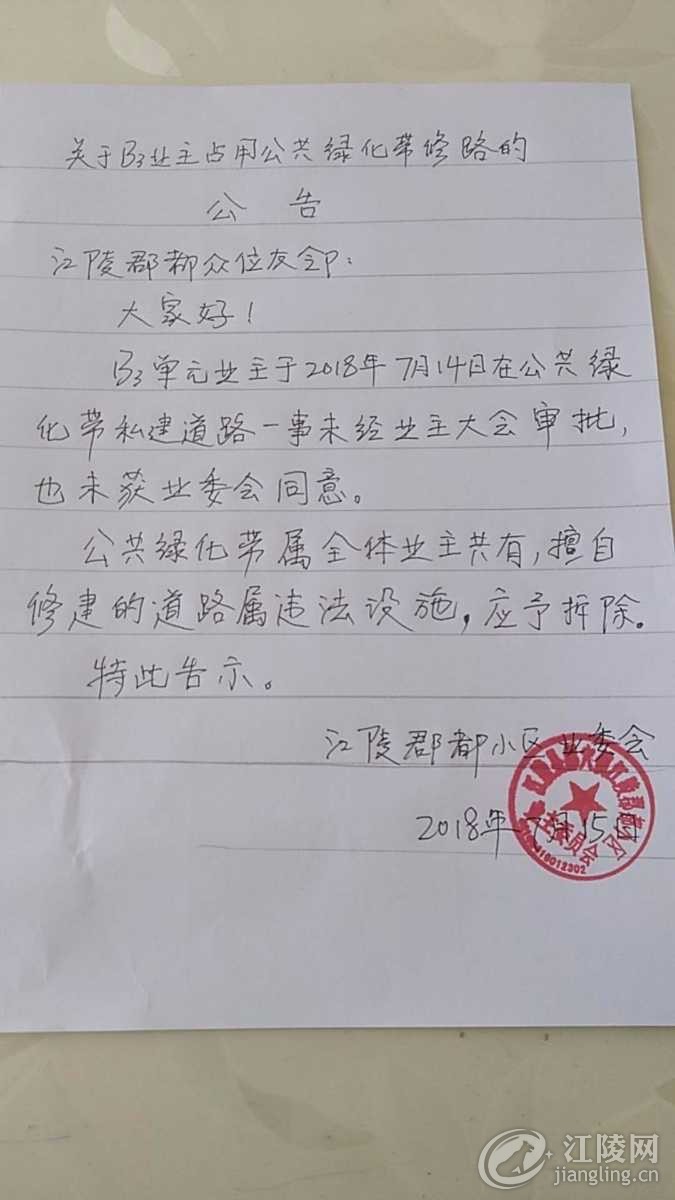 关于B3业主占用公共绿化带修路的
公告
江陵郡都众位友邻:
大家好!
B3单元业主于2018年7月14日在公共绿
化带私建道路一事未经业主大会审批,
也未获业委会同意。
公共绿化带属全体业主共有,擅自
修建的道路属违法设施,应予拆除.
特此告示。
江陵郡都小区业委会
2018年7月15日
江陵网
jiangling.cn